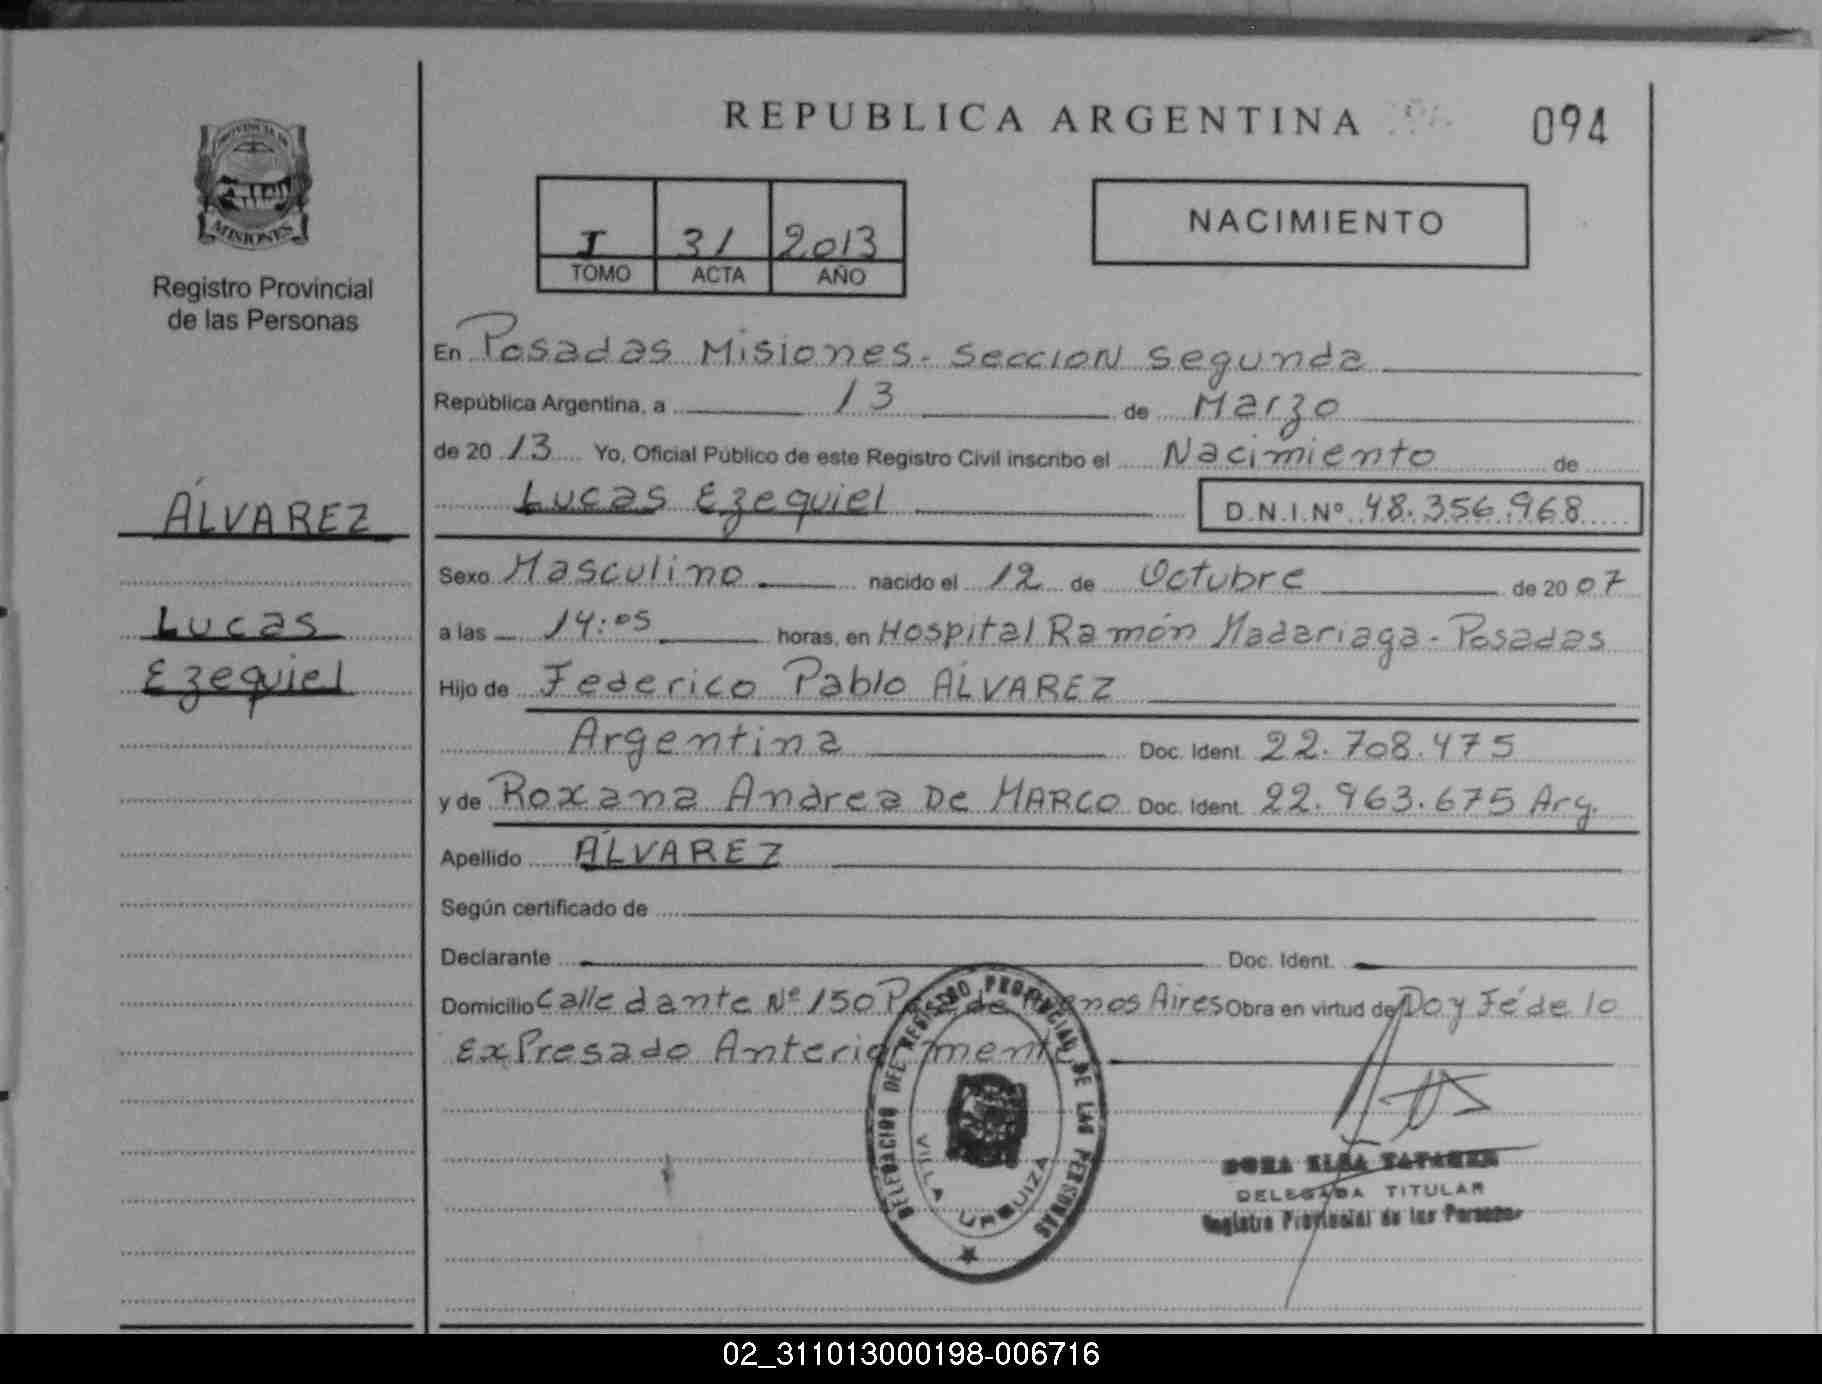 REPUBLICA ARGENTINA
094
PROVINCIA DE
MISIONES
Registro Provincial
de las Personas
I 31 2013
TOMO ACTA AÑO
NACIMIENTO
En Posadas Misiones - Seccion Segunda
República Argentina, a 13 de Marzo
de 20 13 Yo, Oficial Público de este Registro Civil inscribo el Nacimiento de
Lucas Ezequiel D.N.I.Nº 48.356.968
ÁLVAREZ
Lucas
Ezequiel
Sexo Masculino nacido el 12 de Octubre de 20 07
a las 14:05 horas, en Hospital Ramón Madariaga - Posadas
Hijo de Federico Pablo ÁLVAREZ
Argentina Doc. Ident. 22.708.475
y de Roxana Andrea De MARCO Doc. Ident. 22.963.675 Arg.
Apellido ÁLVAREZ
Según certificado de
Declarante Doc. Ident.
Domicilio Calle dante Nº 150 de Buenos Aires Obra en virtud de Doy Fé de lo
ExPresado Anteriormente
DELEGACION DEL REGISTRO PROVINCIAL DE LAS PERSONAS
VILLA URQUIZA
DORA ELSA
DELEGADA TITULAR
Registro Provincial de las Personas
02_311013000198-006716